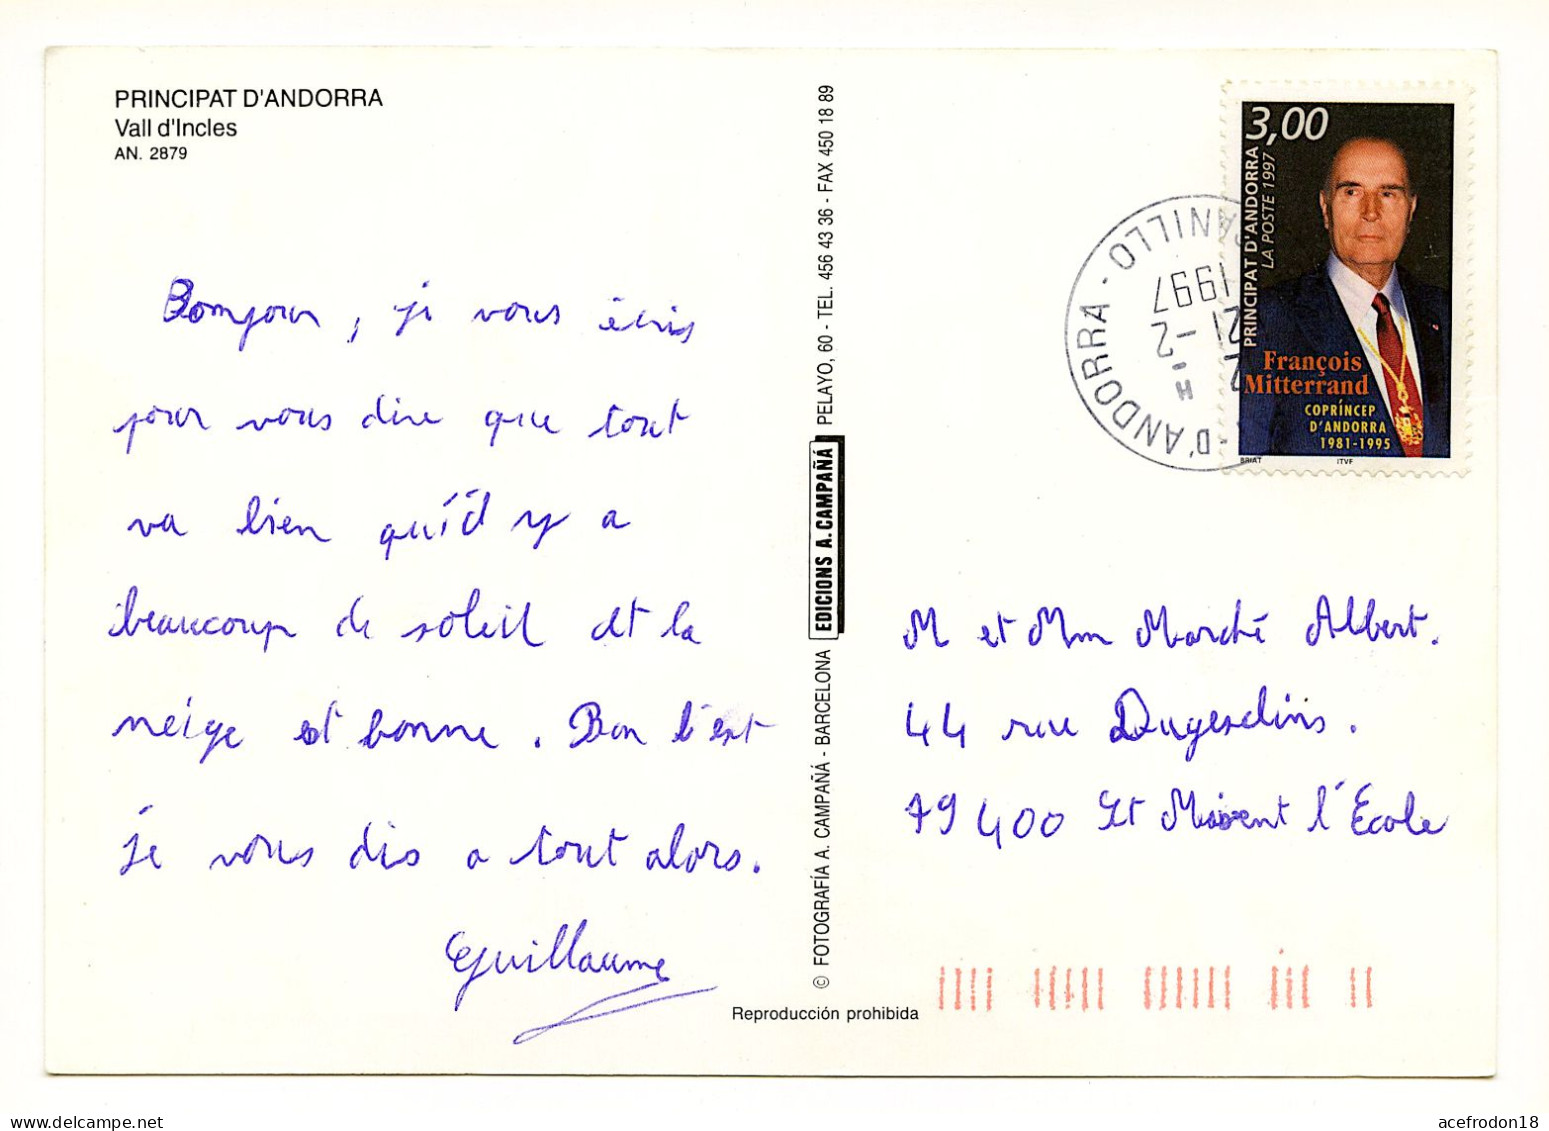 PRINCIPAT D'ANDORRA
Vall d'Incles
AN. 2879
Bonjour, je vous écris
pour vous dire que tout
va bien qu'il y a
beaucoup de soleil et la
neige est bonne. Bon c'est
je vous dis a tout alors.
Guillaume
© FOTOGRAFÍA A. CAMPAÑÁ - BARCELONA EDICIONS A. CAMPAÑÁ PELAYO, 60 - TEL. 456 43 36 - FAX 450 18 89
Reproducción prohibida
3,00
PRINCIPAT D'ANDORRA
LA POSTE 1997
François
Mitterrand
COPRÍNCEP
D'ANDORRA
1981-1995
BRIAT ITVF
D'ANDORRA - ANILLO
H
21 -2
1997
M et Mm Marché Albert.
44 rue Dugesclins.
79400 St Maixent l'École
acefrodon18
www.delcampe.net